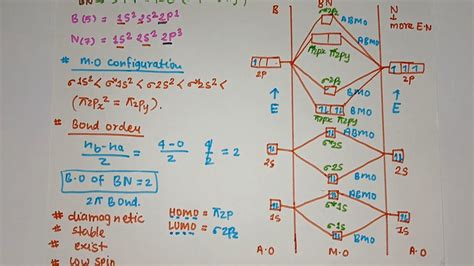 B(5) = 1s² 2s² 2p¹
N(7) = 1s² 2s² 2p³
# M.O configuration
σ1s² < σ*1s² < σ2s² < σ*2s² <
(π2px² = π2py²).
# Bond order
nb-na/2 = 4-0/2 = 4/2 = 2
B.O OF BN = 2
2π Bond.
# diamagnetic
* stable
* exist
# low spin
HOMO = π2p
LUMO = σ2pz
B
BN
N
more E.N
σ*2pz
ABMO
π*2px π*2py
ABMO
2p
2p
σ2pz
BMO
E
E
BMO
π2px π2py
σ*2s
ABMO
2s
2s
σ2s
BMO
σ*1s
ABMO
1s
1s
σ1s
BMO
A.O
M.O
A.O